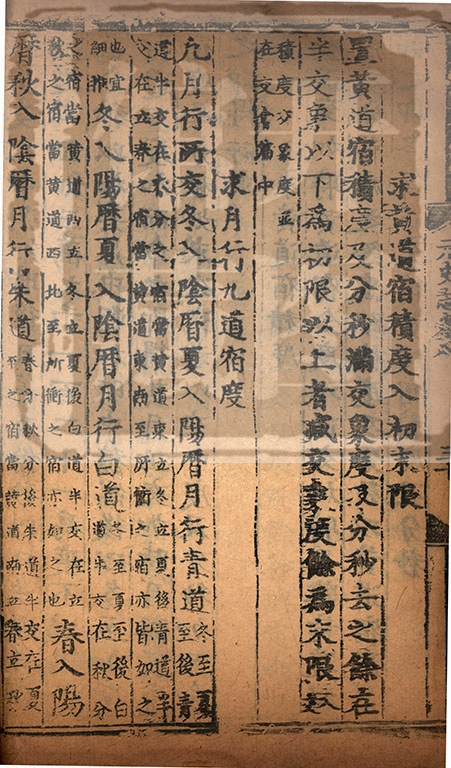 求黃道宿積度入初末限
置黃道宿積度及分秒滿交象度及分秒去之餘在
半交象以下爲初限以上者减交象度餘爲末限
積度交象度並
在交會術中
求月行九道宿度
凡月行所交冬入陰曆夏入陽曆月行青道冬至夏至後青
道半交在春分之宿當黃道東立冬立夏後青道半
交在立春之宿當黃道東南至所衝之宿亦皆如之
也宜細推冬入陽曆夏入陰曆月行白道冬至夏至後白道半交在秋分
之宿當黃道西立冬立夏後白道半交在立
秋之宿當黃道西北至所衝之宿亦如之也春入陽
曆秋入陰曆月行朱道春分秋分後朱道半交在夏至之宿當黃道南立春立秋